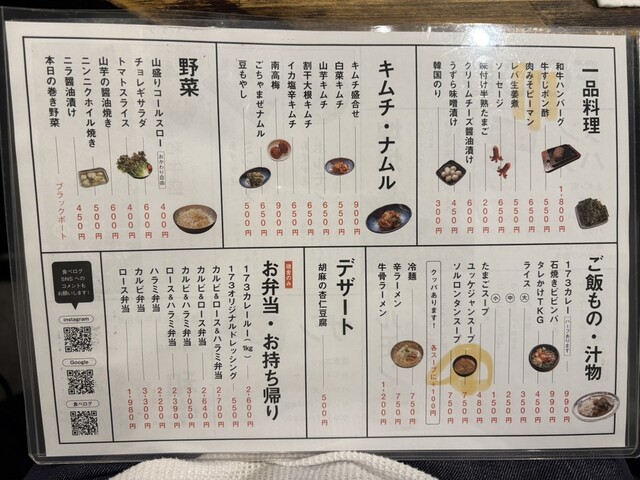 一品料理
和牛ハンバーグ 1,800円
牛すじポン酢 650円
肉みそピーマン 650円
レバ生姜煮 500円
ソーセージ 600円
味付け半熟たまご 200円
クリームチーズ醤油漬け 600円
うずら味噌漬け 450円
韓国のり 300円
キムチ・ナムル
キムチ盛合せ 900円
白菜キムチ 500円
山芋キムチ 650円
割干大根キムチ 600円
イカ塩辛キムチ 650円
南高梅 900円
ごちゃまぜナムル 650円
豆もやし 500円
野菜
山盛りコールスロー おかわり自由 400円
チョレギサラダ 600円
トマトスライス 400円
山芋の醤油焼き 600円
ニンニクホイル焼き 500円
ニラ醤油漬け 450円
本日の巻き野菜 ブラックボード
ご飯もの・汁物
173カレー ハーフあります 990円
石焼きビビンバ 990円
タレかけTKG 450円
ライス 大 350円
中 250円
小 150円
たまごスープ 480円
ユッケジャンスープ 750円
ソルロンタンスープ 750円
クッパあります! 各スープに+100円
冷麺 750円
辛ラーメン 750円
牛骨ラーメン 1,200円
デザート
胡麻の杏仁豆腐 500円
お弁当・お持ち帰り
173カレールー(1kg) 2,600円
173オリジナルドレッシング 550円
カルビ&ロース&ハラミ弁当 2,700円
カルビ&ロース弁当 2,640円
カルビ&ハラミ弁当 3,050円
ロース&ハラミ弁当 2,390円
ハラミ弁当 2,200円
カルビ弁当 3,300円
ロース弁当 1,980円
食べログ
SNSへの
コメントも
お願いします!
Instagram
Google
食べログ